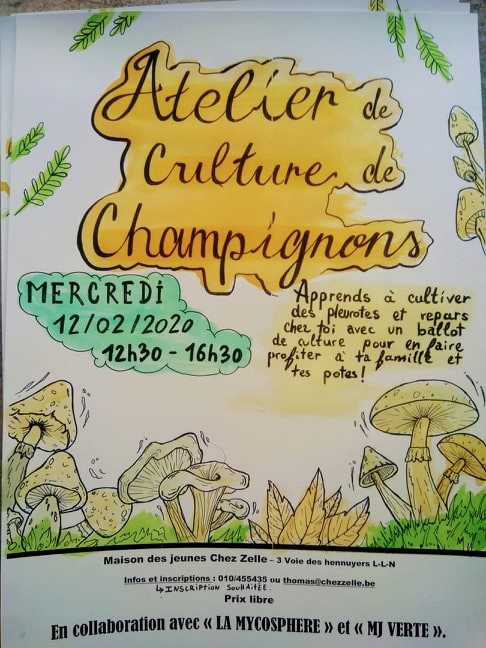 Atelier de
Culture de
Champignons
MERCREDI
12/02/2020
12h30 - 16h30
Apprends à cultiver
des pleurotes et repars
chez toi avec un ballot
de culture pour en faire
profiter à ta famille et
tes potes!
Maison des jeunes Chez Zelle – 3 Voie des hennuyers L-L-N
Infos et inscriptions : 010/455435 ou thomas@chezzelle.be
↳ INSCRIPTION SOUHAITÉE.
Prix libre
En collaboration avec « LA MYCOSPHERE » et « MJ VERTE ».